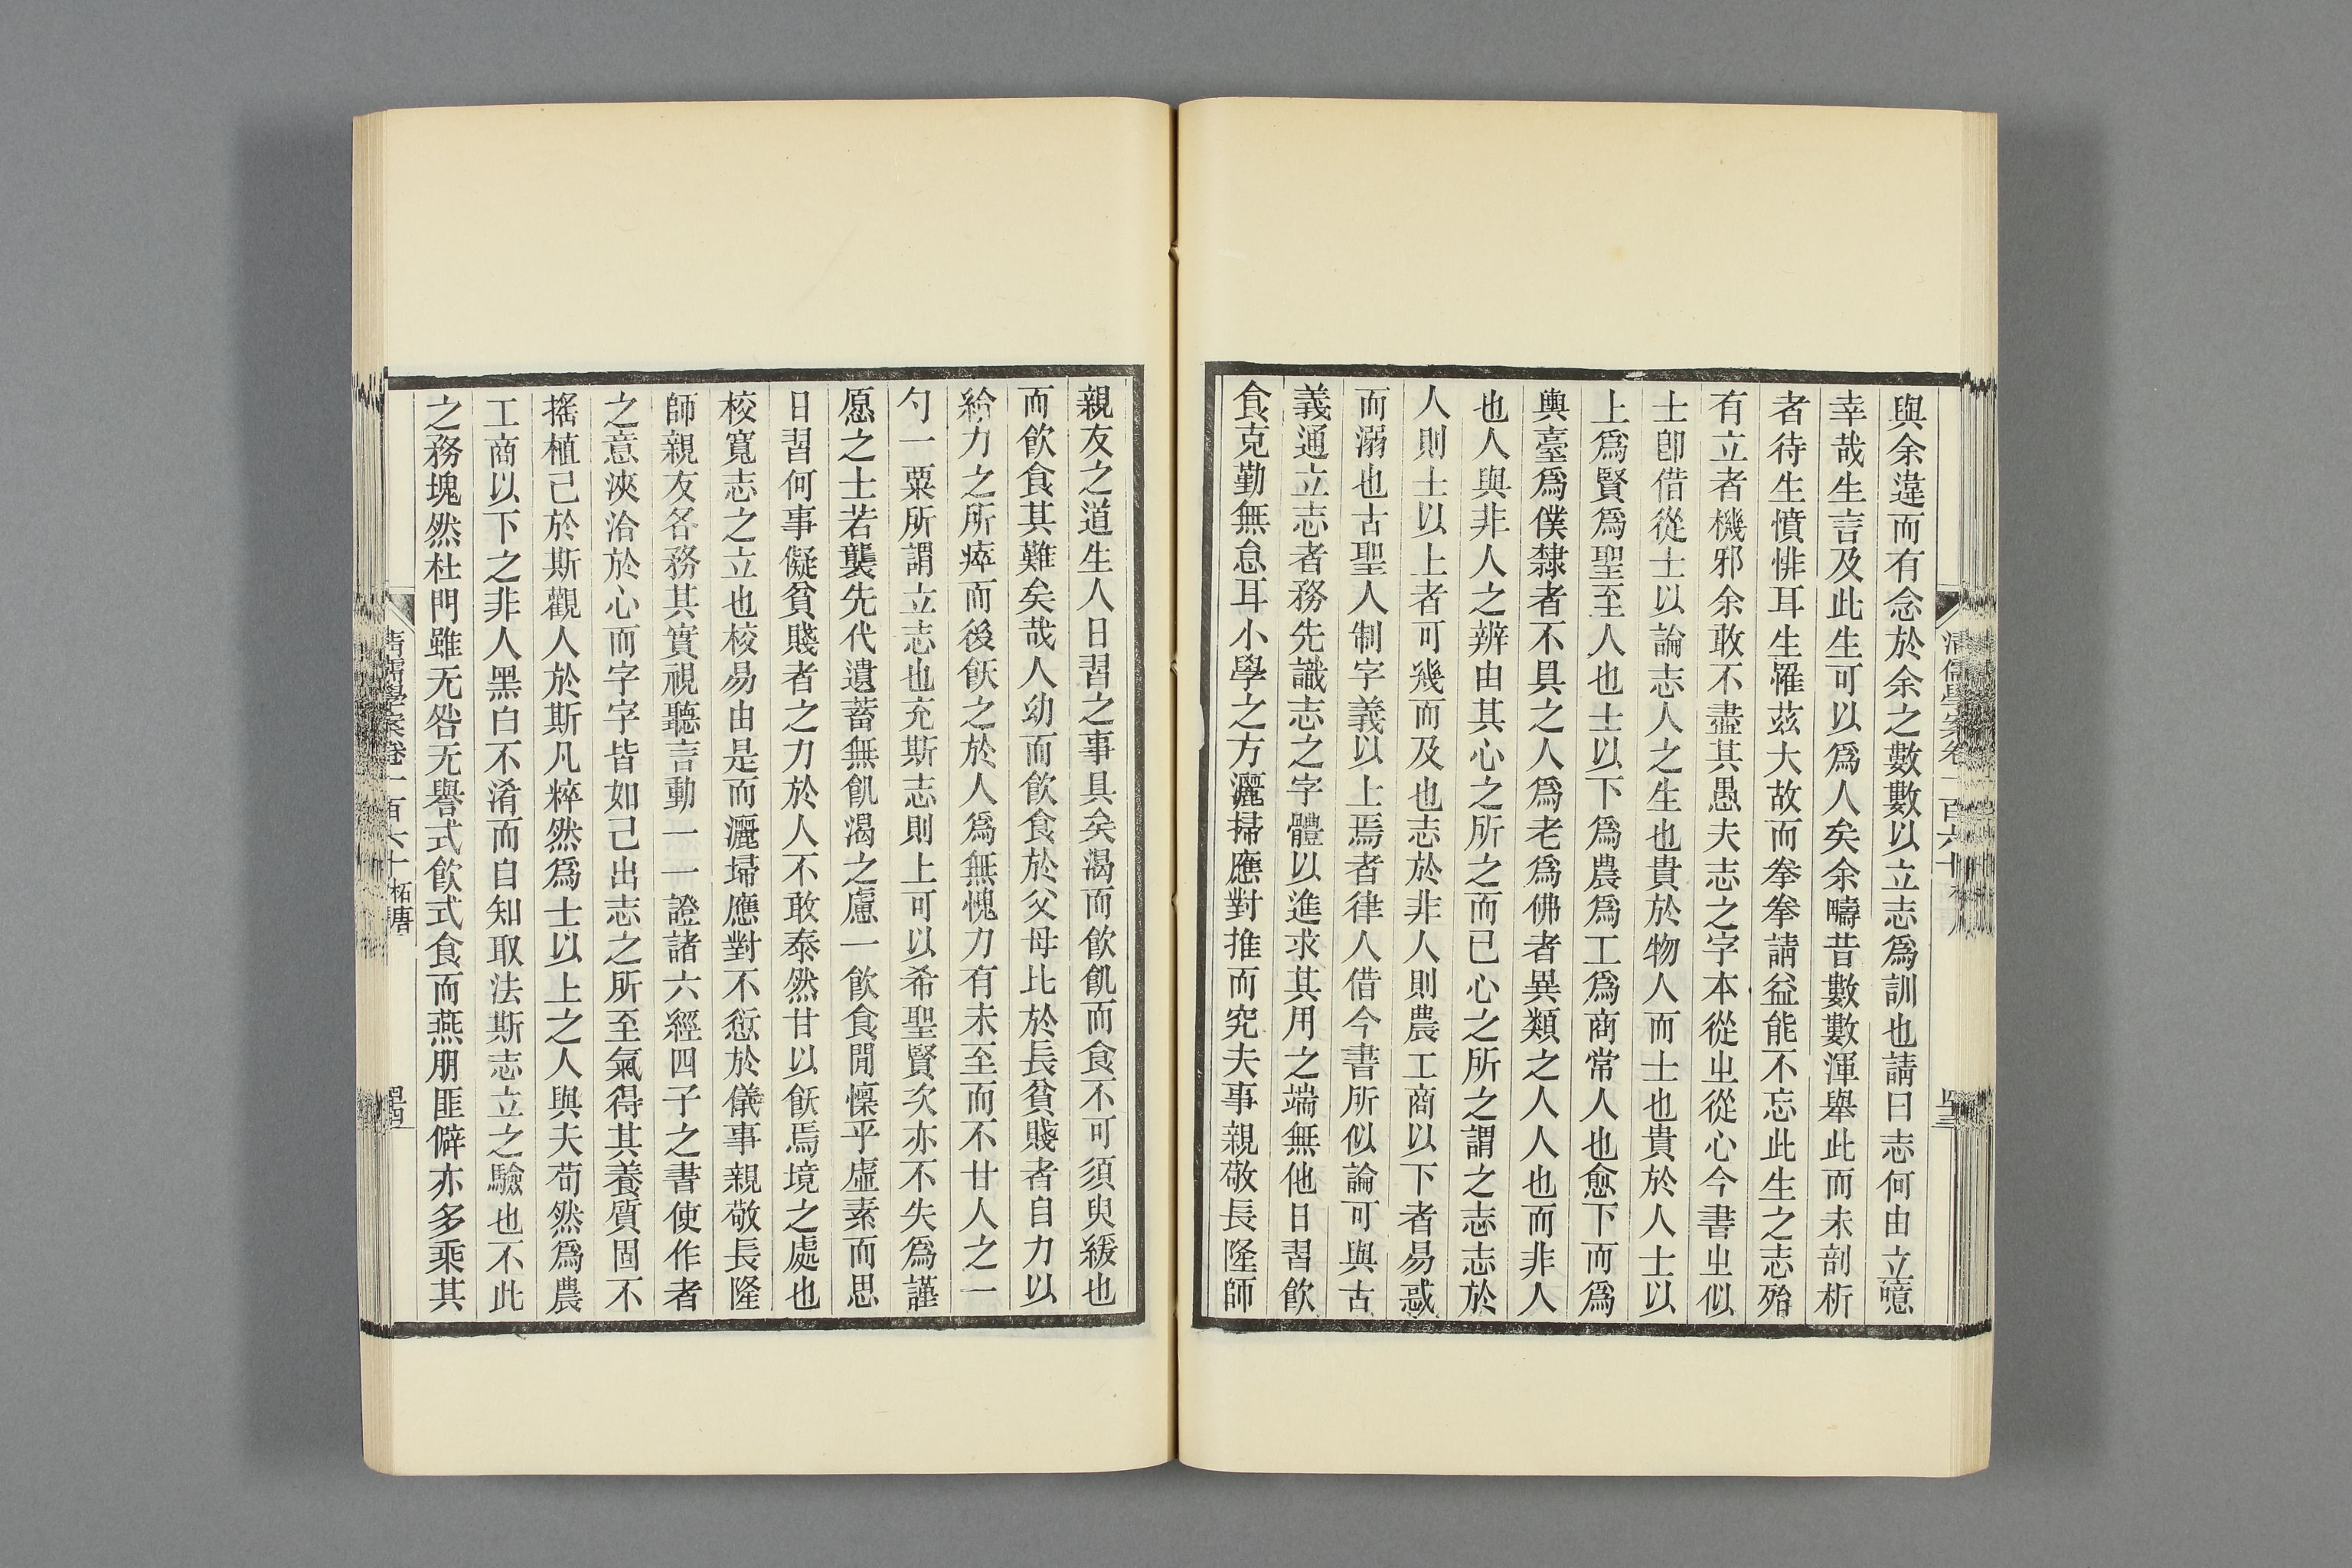 與余違而有念於余之數數以立志爲訓也請曰志何由立噫
幸哉生言及此生可以爲人矣余疇昔數數渾舉此而未剖析
者待生憤悱耳生罹茲大故而拳拳請益能不忘此生之志殆
有立者機邪余敢不盡其愚夫志之字本從㞢從心今書㞢似
士卽借從士以論志人之生也貴於物人而士也貴於人士以
上爲賢爲聖至人也士以下爲農爲工爲商常人也愈下而爲
輿臺爲僕隸者不具之人爲老爲佛者異類之人人也而非人
也人與非人之辨由其心之所之而已心之所之謂之志志於
人則士以上者可幾而及也志於非人則農工商以下者易惑
而溺也古聖人制字義以上焉者律人借今書所似論可與古
義通立志者務先識志之字體以進求其用之端無他日習飲
食克勤無怠耳小學之方灑掃應對推而究夫事親敬長隆師
親友之道生人日習之事具矣渴而飲飢而食不可須臾緩也
而飲食其難矣哉人幼而飲食於父母比於長貧賤者自力以
給力之所瘁而後飫之於人爲無愧力有未至而不甘人之一
勺一粟所謂立志也充斯志則上可以希聖賢次亦不失爲謹
愿之士若襲先代遺蓄無飢渴之慮一飲食閒懍乎虛素而思
日習何事儗貧賤者之力於人不敢泰然甘以飫焉境之處也
校寬志之立也校易由是而灑埽應對不愆於儀事親敬長隆
師親友各務其實視聽言動一一證諸六經四子之書使作者
之意浹洽於心而字字皆如己出志之所至氣得其養質固不
搖植己於斯觀人於斯凡粹然爲士以上之人與夫苟然爲農
工商以下之非人黑白不淆而自知取法斯志立之驗也不此
之務塊然杜門雖无咎无譽式飲式食而燕朋匪僻亦多乘其
清儒學案卷一百六十 柘唐